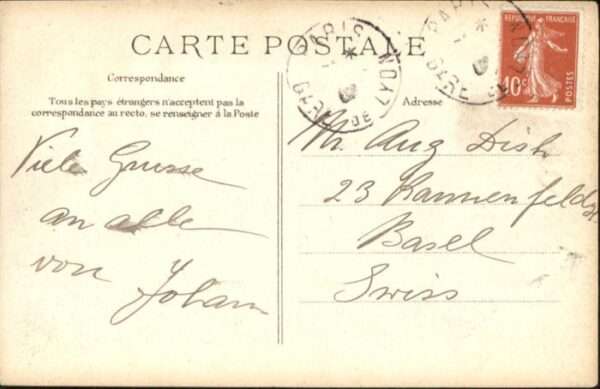 CARTE POSTALE
Correspondance
Tous les pays étrangers n'acceptent pas la
correspondance au recto, se renseigner à la Poste
Viele Grüsse
an alle
von
Adresse
Mr. Aug
23 Kannenfeldstr
Basel
Swiss
PARIS
GARE DE LYON
PARIS
GARE
REPUBLIQUE FRANÇAISE
10c
POSTES